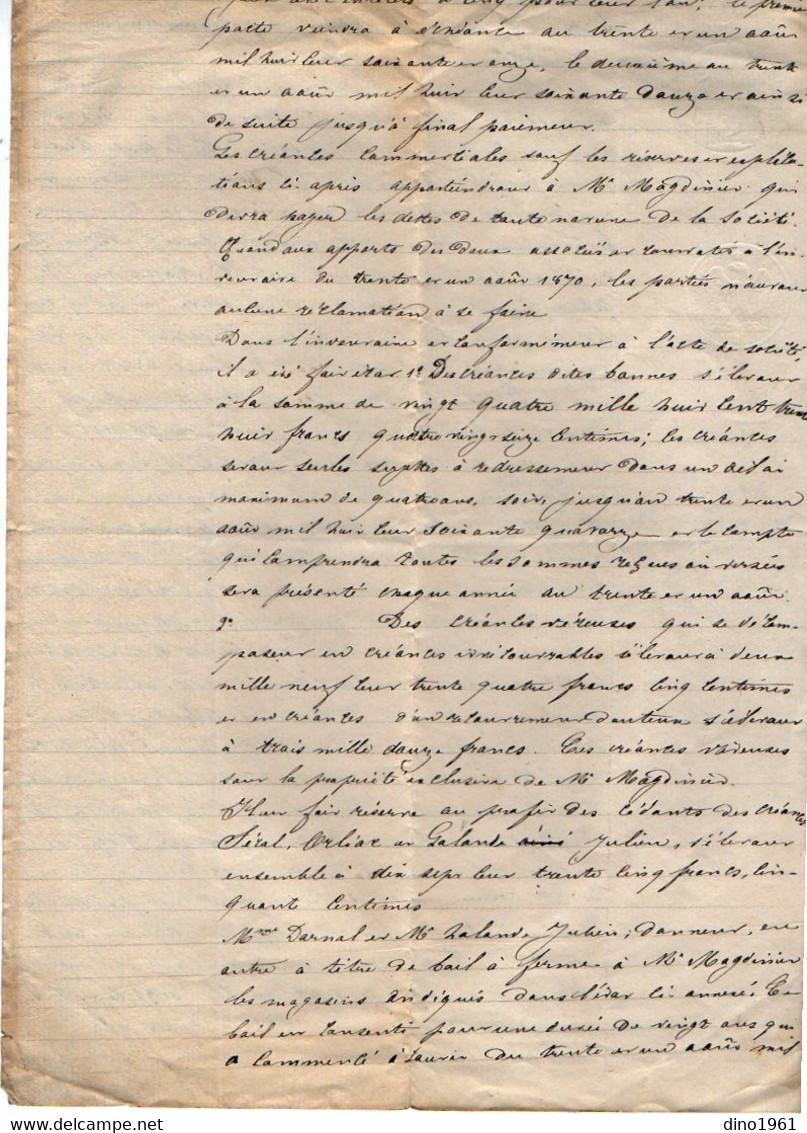 pacte viendra à échéance au trente et un août
mil huit cent soixante et onze, le deuxième au trente
et un août mil huit cent soixante douze et ainsi
de suite jusqu'à final paiement.
Les créances commerciales sauf les réserves et explica-
tions ci après appartiendront à Mr Magdinier qui
devra payer les dettes de toute nature de la société.
Quand aux apports des deux associés et constatés à l'in-
ventaire du trente et un août 1870, les parties n'auront
aucune réclamation à se faire
Dans l'inventaire et conformément à l'acte de société,
il a été fait état 1º Des créances dites bonnes s'élevant
à la somme de vingt quatre mille huit cent trente
huit francs quatre vingt seize centimes; les créances
seront seules sujettes à redressement dans un délai
maximum de quatre ans, soit jusqu'au trente et un
août mil huit cent soixante quatorze et le compte
qui comprendra toutes les sommes reçues ou versées
sera présenté chaque année au trente et un août.
2º Des créances véreuses qui se décom-
posent en créances irrécouvrables s'élevant à deux
mille neuf cent trente quatre francs cinq centimes
et en créances d'un recouvrement douteux s'élevant
à trois mille douze francs. Ces créances véreuses
sont la propriété exclusive de Mr Magdinier.
Il est fait réserve au profit des cédants des créances
Orliac et Galande Julien, s'élevant
ensemble à dix sept cent trente cinq francs, cin-
quant centimes
Mme Darnal et Mr Lalande Julien, donnent, en
outre à titre de bail à ferme à Mr Magdinier
les magasins indiqués dans l'état ci annexé. Ce
bail est consenti pour une durée de vingt ans qui
a commencé à courir du trente et un août mil
dino1961